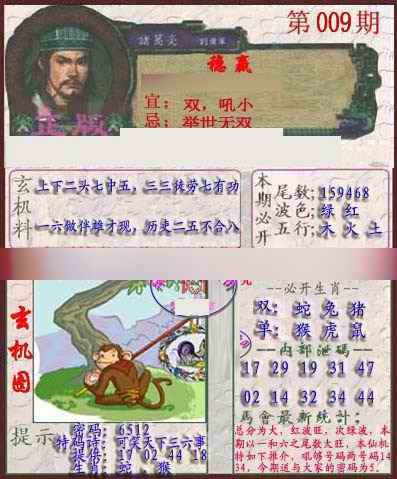 第009期
諸葛亮 劉伯軍
稳赢
宜：双，吼小
忌：举世无双
正版
玄机料
上下二头七中五，三三徒劳七有功
一六做伴雄才现，历史二五不合八
本期必开
尾数；159468
波色；绿 红
五行；木 火 土
玄机图
--必开生肖--
双：蛇 兔 猪
单：猴 虎 鼠
内部泄码
17 29 19 31 47
02 14 32 34 44
馬會最新统计：
总分为大，红波旺，次绿波，本
期以一和六之尾数大旺，本仙机
特如下推介，吼够号码两号码14
34，今期送与大家的密码为5。
提示
密码：6512
特码诗：可笑天下三六事
提供：17 02 44 18
生肖：蛇，猴